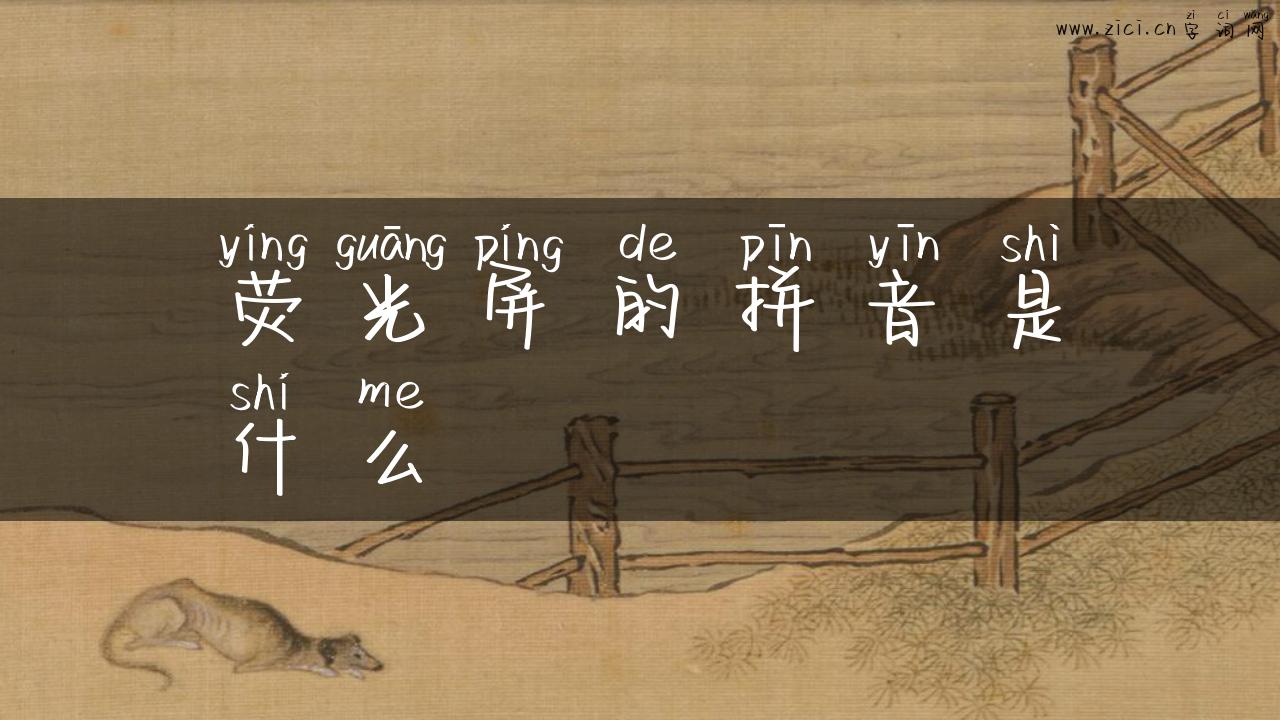 zì cí wǎng
www.zici.cn 字词网
yíng guāng píng de pīn yīn shì
荧光屏的拼音是
shí me
什么